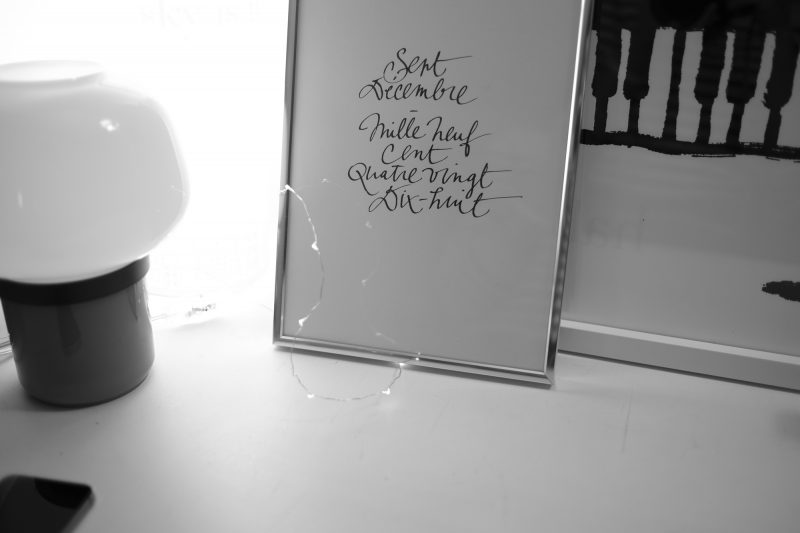 Sept
Décembre
–
Mille neuf
cent
Quatre vingt
Dix-huit